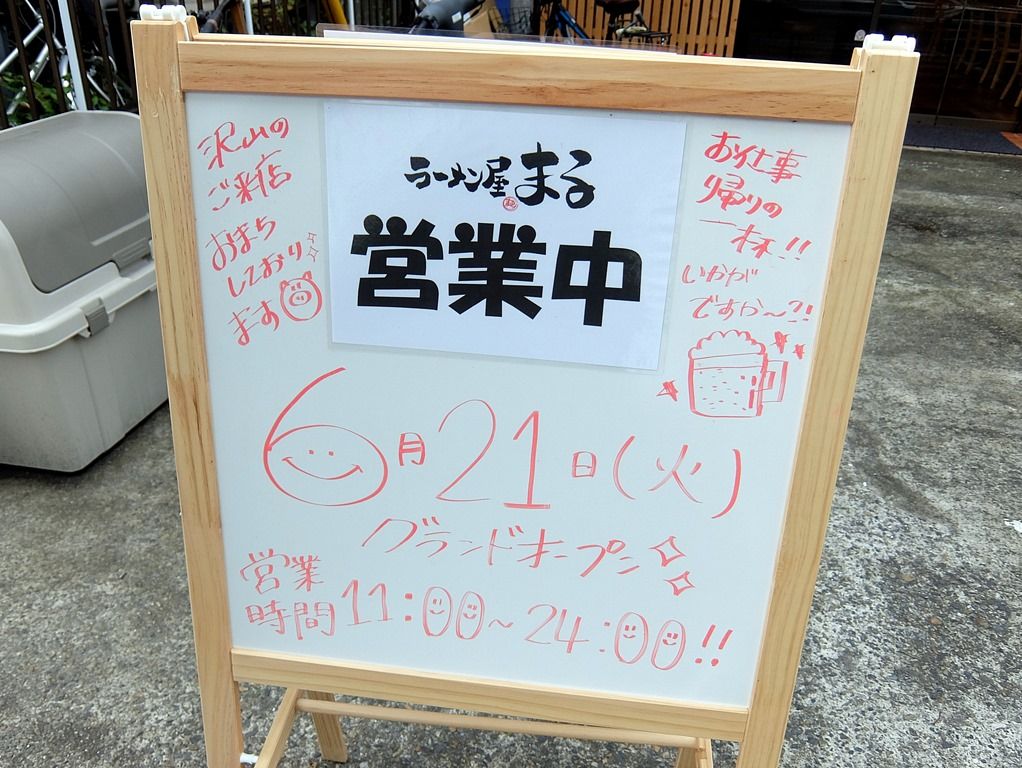 沢山の
ご来店
おまち
しており
ます
ラーメン屋まる
営業中
お仕事
帰りの
一杯!!
いかが
ですか〜?!
6月21日(火)
グランドオープン
営業
時間11:00〜24:00!!